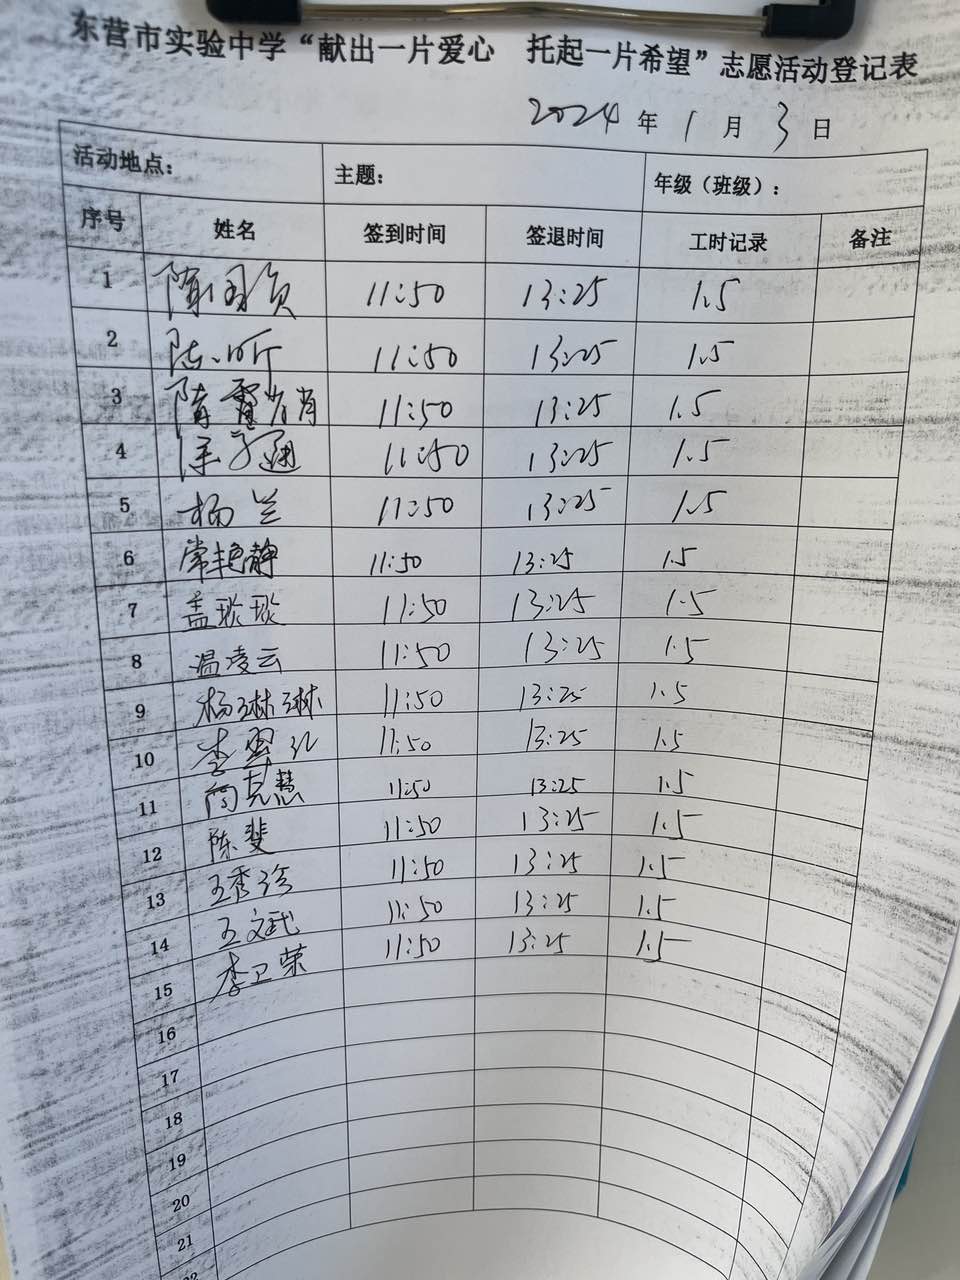 东营市实验中学“献出一片爱心 托起一片希望”志愿活动登记表
2024 年 1 月 3 日
活动地点： 主题： 年级（班级）：
序号 姓名 签到时间 签退时间 工时记录 备注
1 11:50 13:25 1.5
2 陈昕 11:50 13:25 1.5
3 隋霄肖 11:50 13:25 1.5
4 11:50 13:25 1.5
5 杨兰 11:50 13:25 1.5
6 常艳静 11:50 13:25 1.5
7 盖琰琰 11:50 13:25 1.5
8 温凌云 11:50 13:25 1.5
9 杨琳琳 11:50 13:25 1.5
10 11:50 13:25 1.5
11 尚克慧 11:50 13:25 1.5
12 陈斐 11:50 13:25 1.5
13 王秀珍 11:50 13:25 1.5
14 王文武 11:50 13:25 1.5
15 李卫荣 11:50 13:25 1.5
16
17
18
19
20
21
22